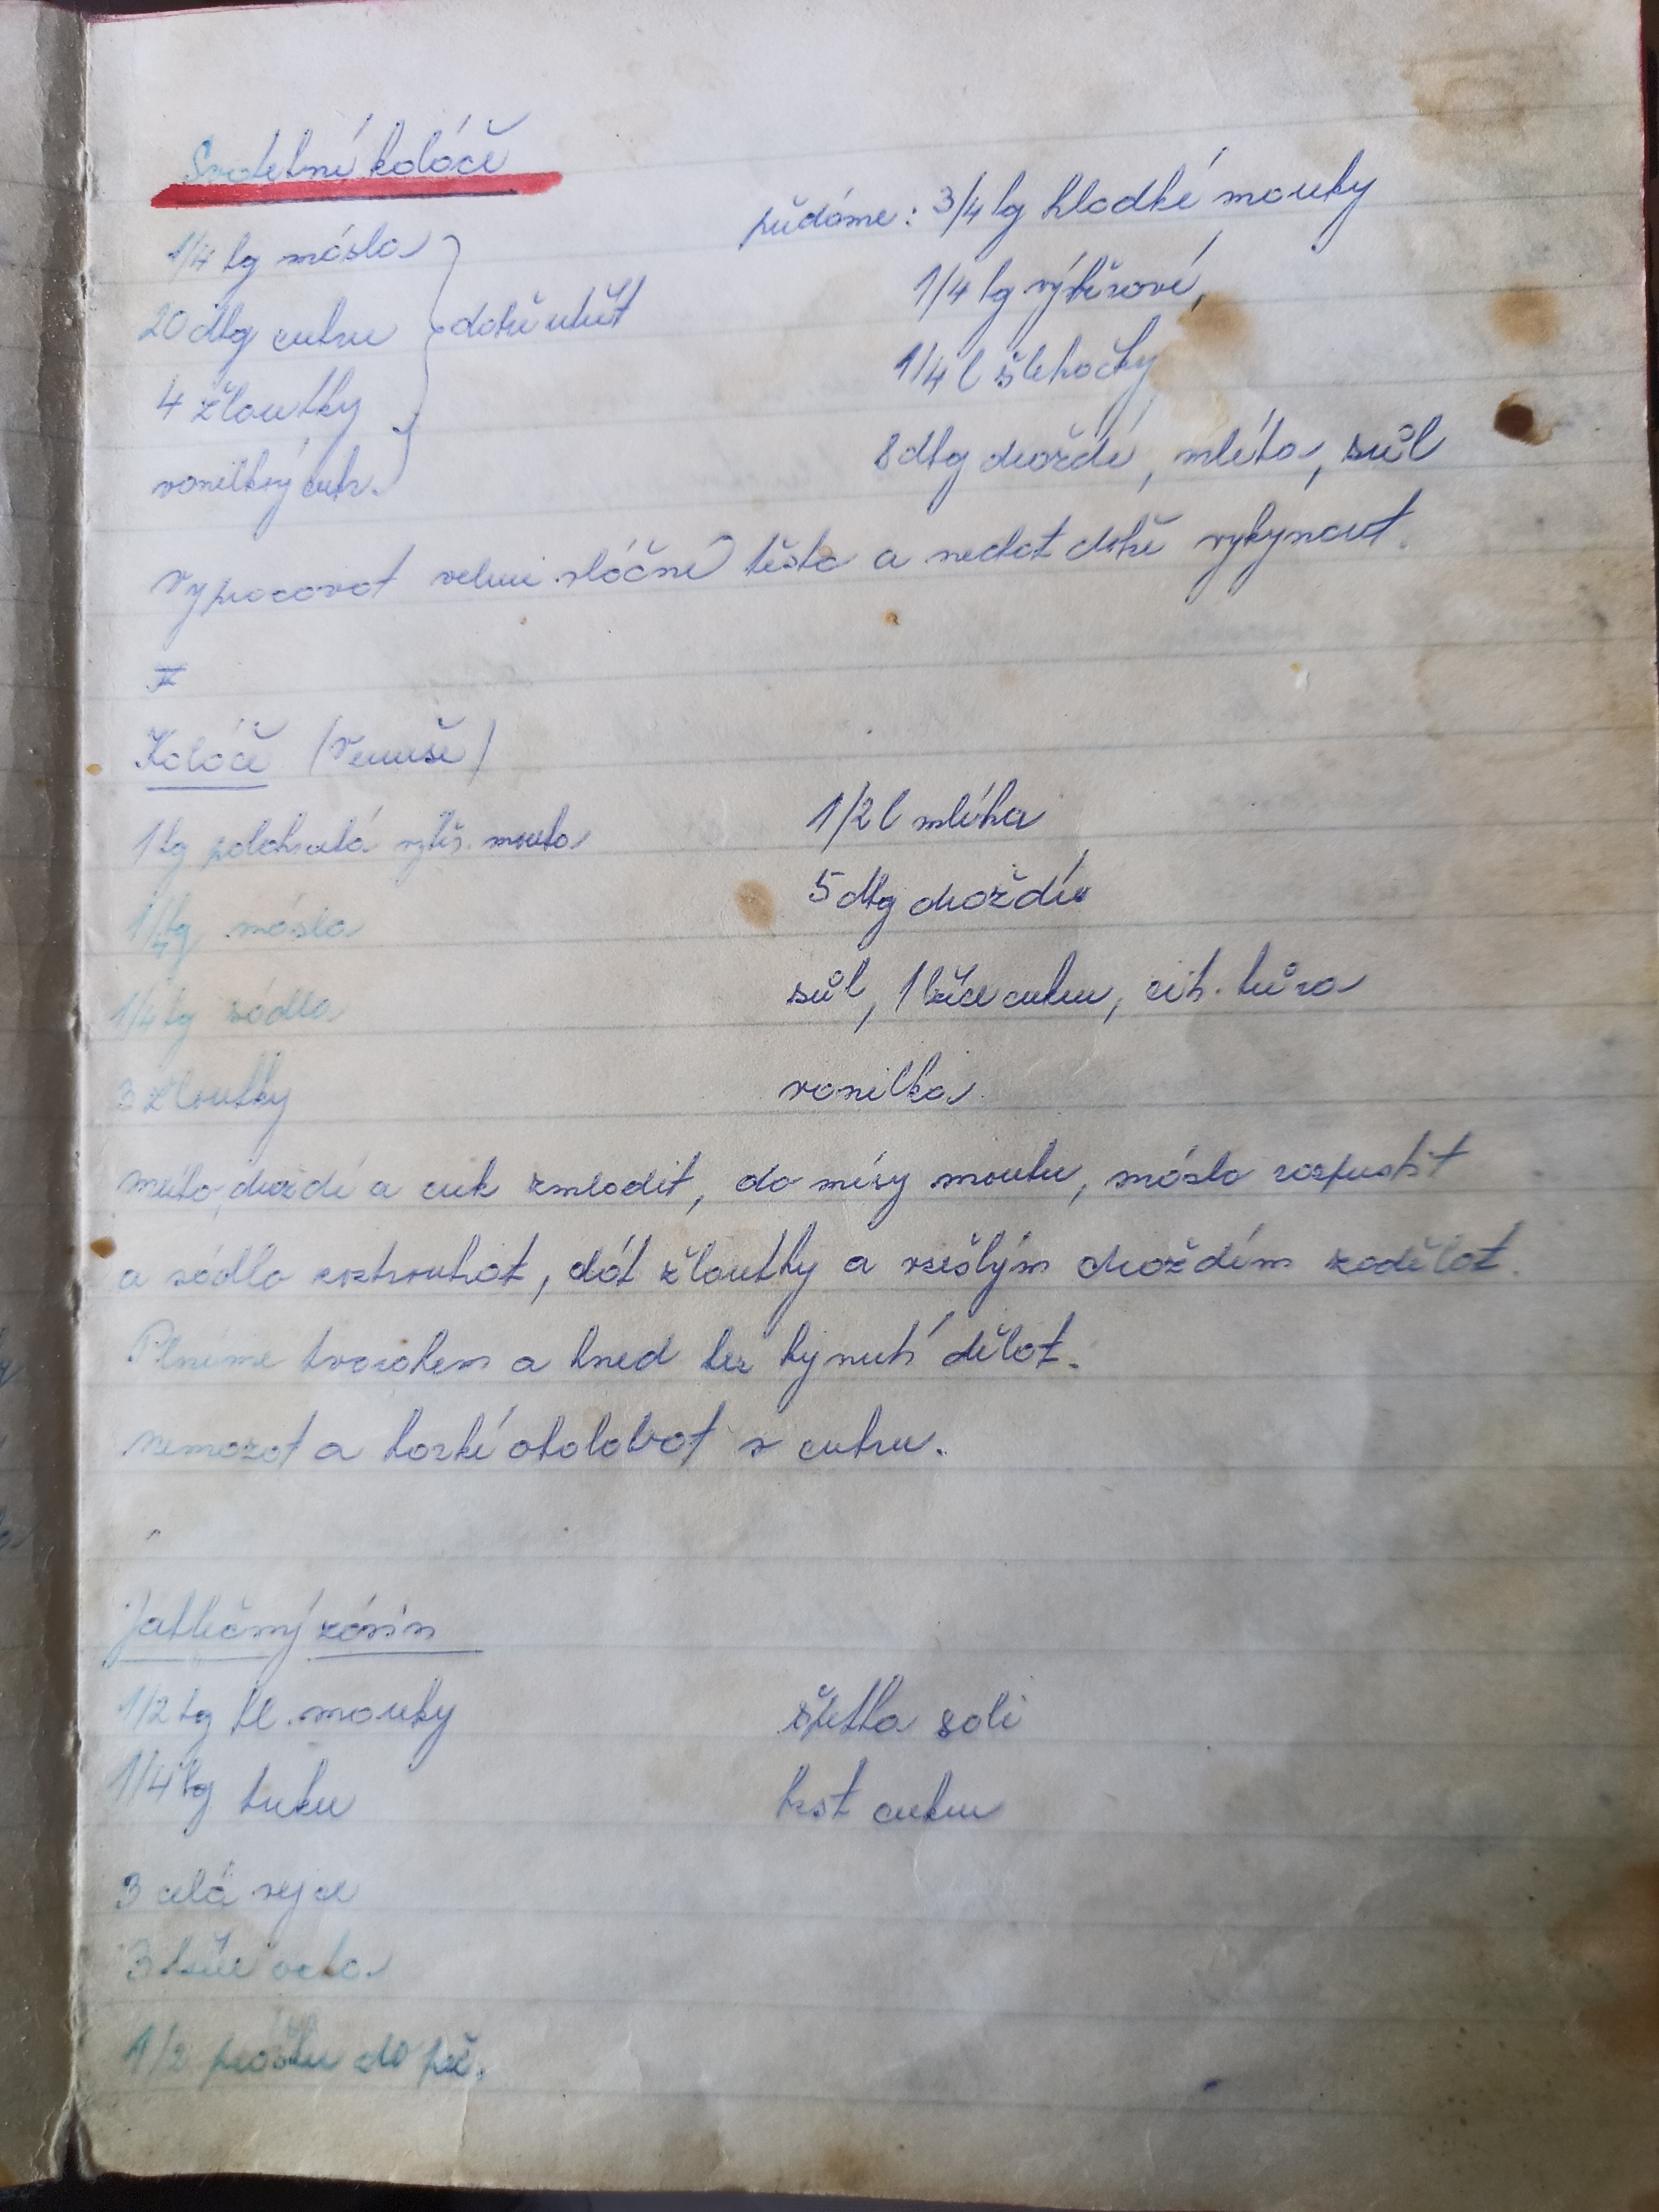 Svatební koláče
1/4 kg másla
20 dkg cukru
4 žloutky
vanilkový cukr.
dobře utřít
přidáme: 3/4 kg hladké mouky
1/4 kg výběrové,
1/4 l šlehačky
8 dkg droždí, mléko, sůl
Vypracovat velmi vláčné těsto a nechat dobře vykynout.
Koláče (Venuše)
1 kg polohrubá výběr. mouka
1/4 kg másla
1/4 kg sádla
3 žloutky
1/2 l mléka
5 dkg droždí
sůl, 1 lžíce cukru, cit. kůra
vanilka
mléko, droždí a cuk zmladit, do mísy mouku, máslo rozpustit
a sádlo rozstrouhat, dát žloutky a vzešlým droždím zadělat.
Plníme tvarohem a hned bez kynutí dělat.
nemazat a horké obalovat v cukru.
Jablečný závin
1/2 kg hl. mouky
1/4 kg tuku
3 celá vejce
3 lžíce octa
1/2 prášku do peč.
špetka soli
hrst cukru